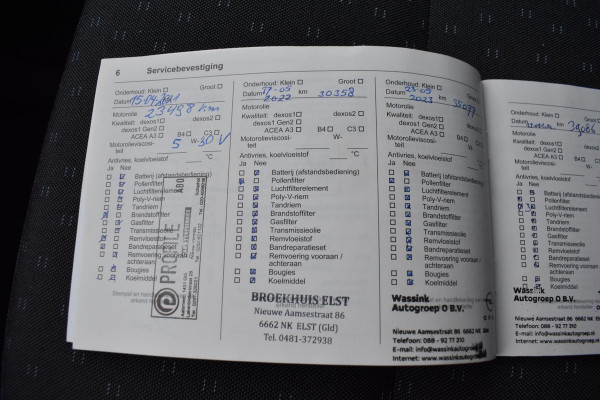 6 Servicebevestiging
Onderhoud: Klein Groot
Datum 15-04-2021
23498 km
Motorolie
Kwaliteit: dexos1 dexos2
dexos1 Gen2
ACEA A3 B4 C3
Motorolieviscosi- 5 W- 30
teit
Antivries, koelvloeistof °C
Ja Nee
Batterij (afstandsbediening)
Pollenfilter
Luchtfilterelement
Poly-V-riem
Tandriem
Brandstoffilter
Gasfilter
Transmissieolie
Remvloeistof
Bandreparatieset
Remvoering vooraan /
achteraan
Bougies
Koelmiddel
PROFILE
Onderhoud: Klein Groot
Datum 17-05 2022 km 30358
Motorolie
Kwaliteit: dexos1 dexos2
dexos1 Gen2
ACEA A3 B4 C3
Motorolieviscosi- W-
teit
Antivries, koelvloeistof °C
Ja Nee
Batterij (afstandsbediening)
Pollenfilter
Luchtfilterelement
Poly-V-riem
Tandriem
Brandstoffilter
Gasfilter
Transmissieolie
Remvloeistof
Bandreparatieset
Remvoering vooraan /
achteraan
Bougies
Koelmiddel
BROEKHUIS ELST
Nieuwe Aamsestraat 86
6662 NK ELST (Gld)
Tel. 0481-372938
Onderhoud: Klein Groot
Datum 2023 km
Motorolie
Kwaliteit: dexos1 dexos2
dexos1 Gen2
ACEA A3 B4 C3
Motorolieviscosi- W-
teit
Antivries, koelvloeistof °C
Ja Nee
Batterij (afstandsbediening)
Pollenfilter
Luchtfilterelement
Poly-V-riem
Tandriem
Brandstoffilter
Gasfilter
Transmissieolie
Remvloeistof
Bandreparatieset
Remvoering vooraan /
achteraan
Bougies
Koelmiddel
Wassink
Autogroep O B.V.
Nieuwe Aamsestraat 86 6662 NK
Telefoon: 088 - 92 77 310
E-mail: info@wassinkautogroep
Internet: www.wassinkautogroep
Onderhoud: Klein
Datum km
Motorolie
Kwaliteit: dexos1
dexos1 Gen2
ACEA A3
Motorolieviscosi-
teit
Antivries, koelvloeistof
Ja Nee
Batterij (afstands
Pollenfilter
Luchtfilterelement
Poly-V-riem
Tandriem
Brandstoffilter
Gasfilter
Transmissieolie
Remvloeistof
Bandreparatieset
Remvoering voor
achteraan
Bougies
Koelmiddel
Wassink
Autogroep O B.V.
Nieuwe Aamsestraat 86 6662
Telefoon: 088 - 92 77 310
E-mail: info@wassinkautogro
Internet: www.wassinkauto